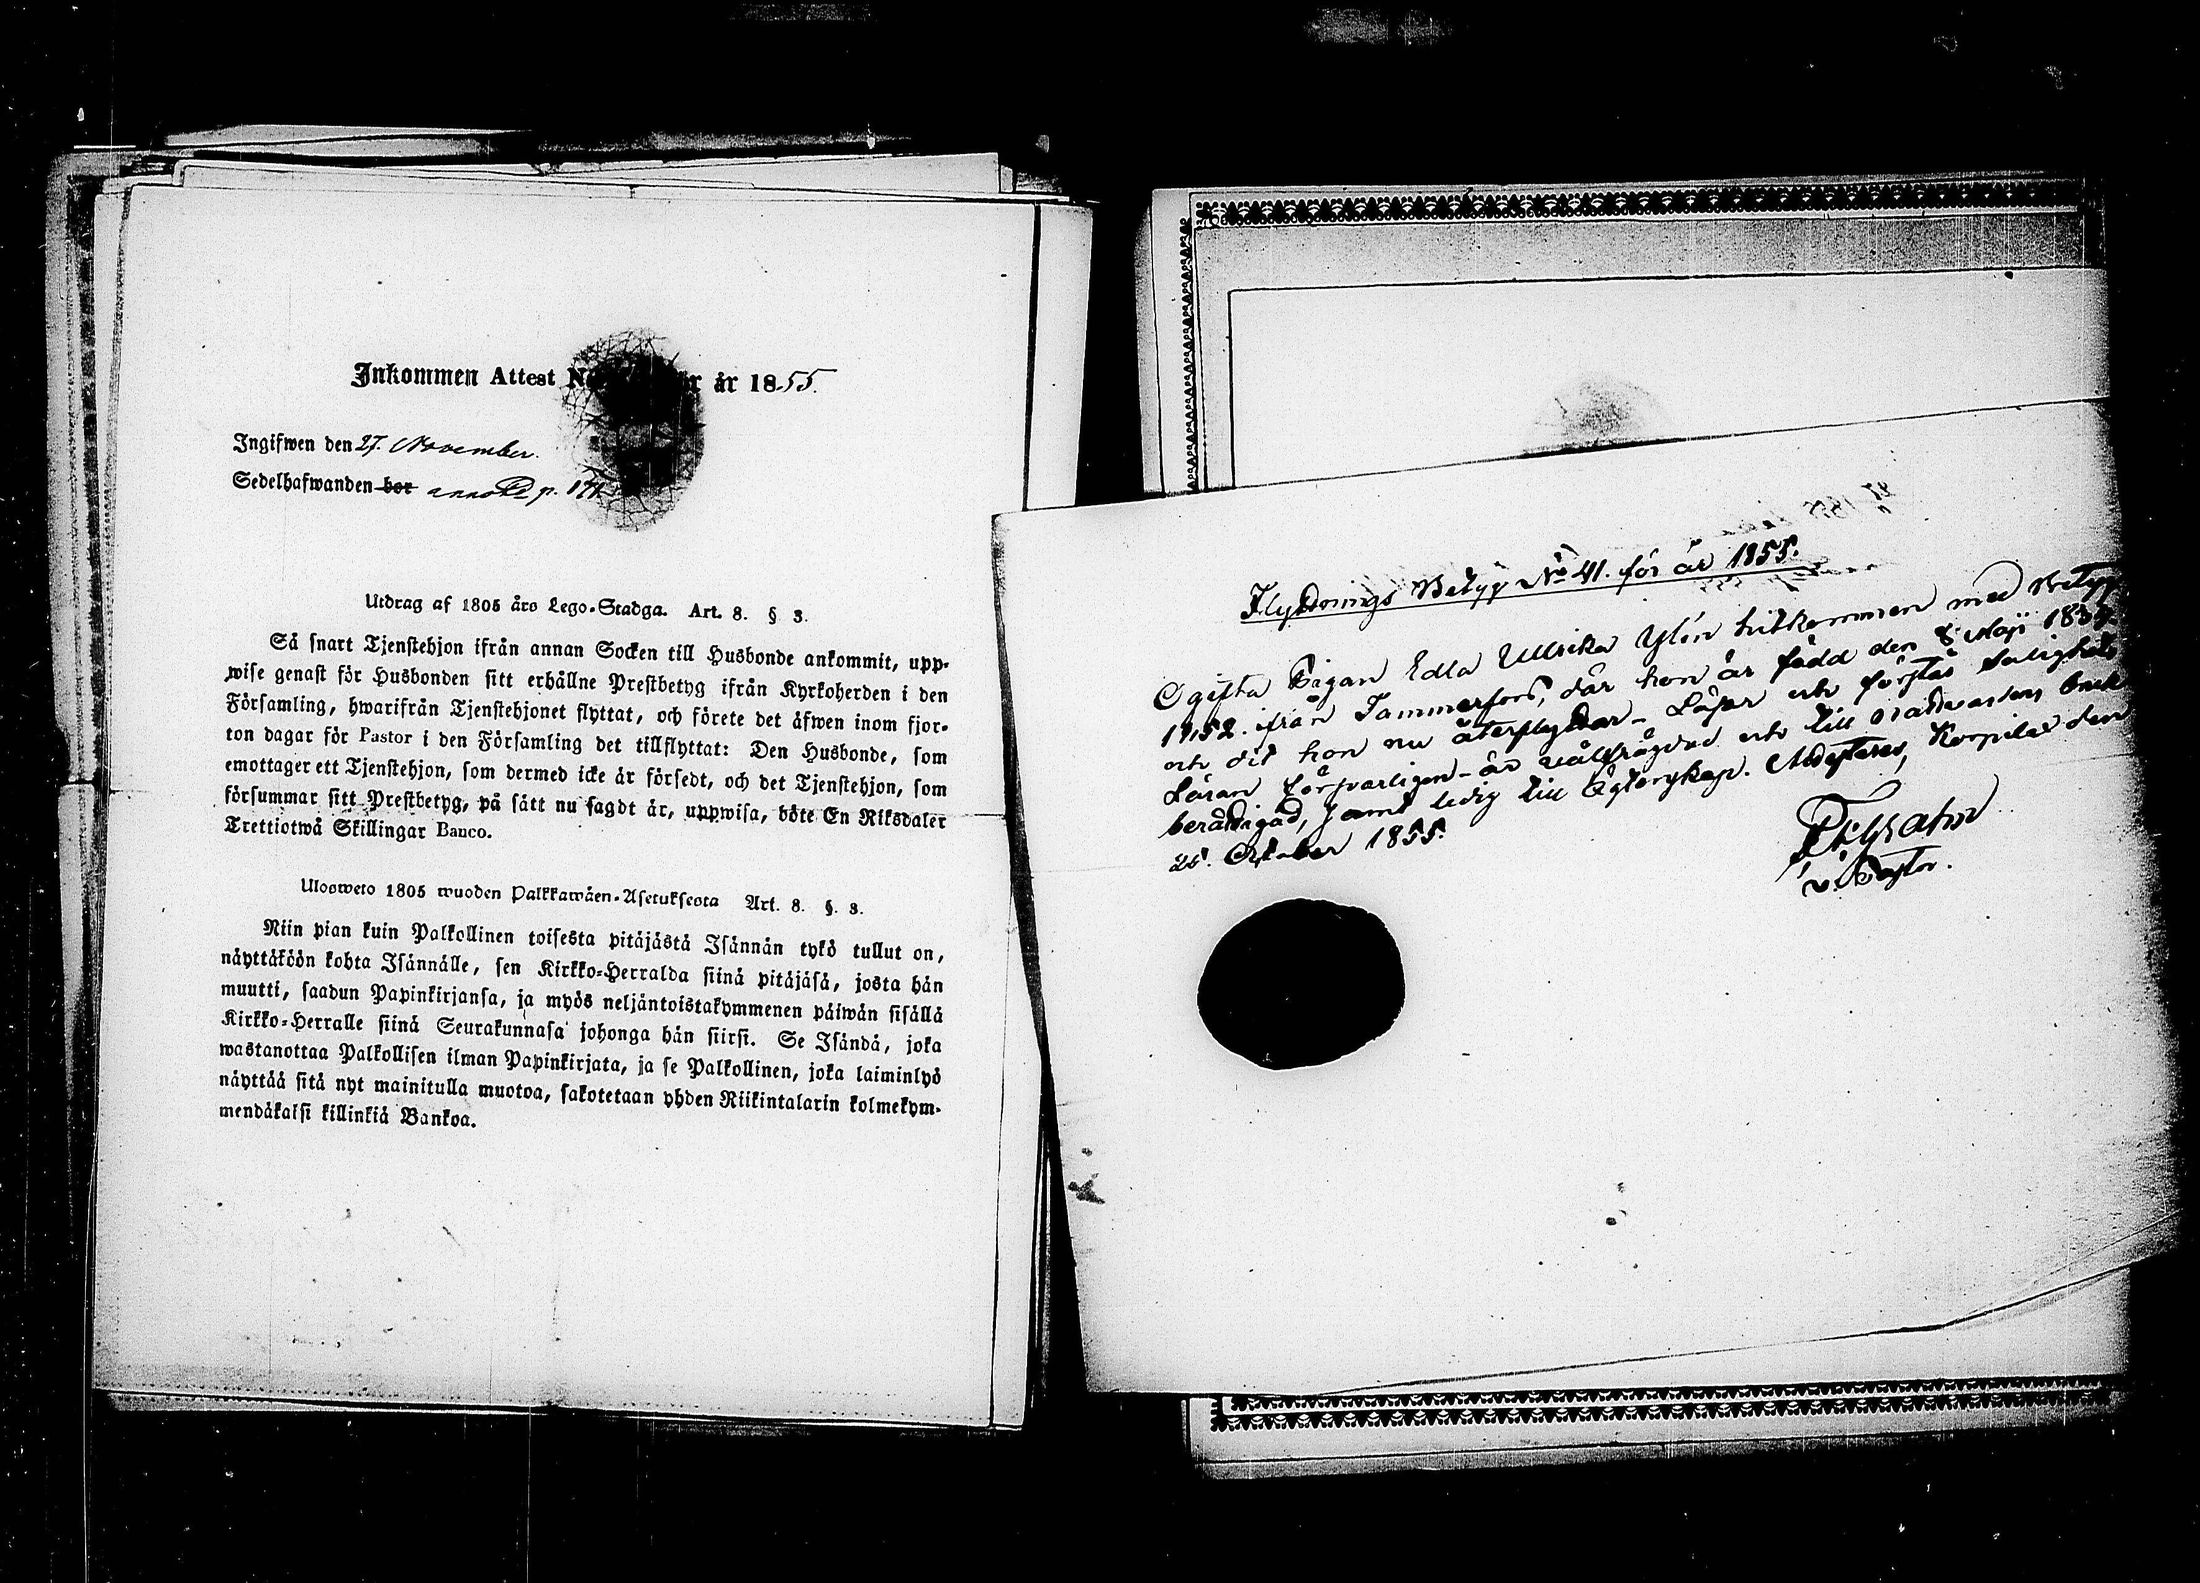 Inkommen Attest N för år 1855.
Ingifwen den 27. November.
Sedelhafwanden bor annotd p. 171
Utdrag af 1805 års Lego-Stadga. Art. 8. § 3.
Så snart Tjenstehjon ifrån annan Socken till Husbonde ankommit, upp-
wise genast för Husbonden sitt erhållne Prestbetyg ifrån Kyrkoherden i den
Församling, hwarifrån Tjenstehjonet flyttat, och förete det äfwen inom fjor-
ton dagar för Pastor i den Församling det tillflyttat: Den Husbonde, som
emottager ett Tjenstehjon, som dermed icke är försedt, och det Tjenstehjon, som
försummar sitt Prestbetyg, på sätt nu sagdt är, uppwisa, böte En Riksdaler
Trettiotwå Skillingar Banco.
Ulosweto 1805 wuoden Palkkawäen-Asetuksesta Art. 8. §. 3.
Niin pian kuin Palkollinen toisesta pitäjästä Isännän tykö tullut on,
näyttäköön kohta Isännälle, sen Kirkko-Herralda siinä pitäjäsä, josta hän
muutti, saadun Papinkirjansa, ja myös neljäntoistakymmenen päiwän sisällä
Kirkko-Herralle siinä Seurakunnasa johonga hän siirsi. Se Isändä, joka
wastanottaa Palkollisen ilman Papinkirjata, ja se Palkollinen, joka laiminlyö
näyttää sitä nyt mainitulla muotoa, sakotetaan yhden Riikintalarin kolmekym-
mendäkaksi killinkiä Bankoa.
Flyttnings Betyg No 41. för år 1855.
Ogifta Pigan Edla Ullrika Ylén hitkommen med Betyg
1852. ifrån Tammerfors, där hon är född den 8 Maji 1834.
och dit hon nu återflyttar - Läser och förstår Salighets
Läran försvarligen - är välfrägdad och till Nattvardens bruk
berättigad, samt ledig till Ägtenskap. Attesteras, Korpila den
25. October 1855.
v. Pastor.